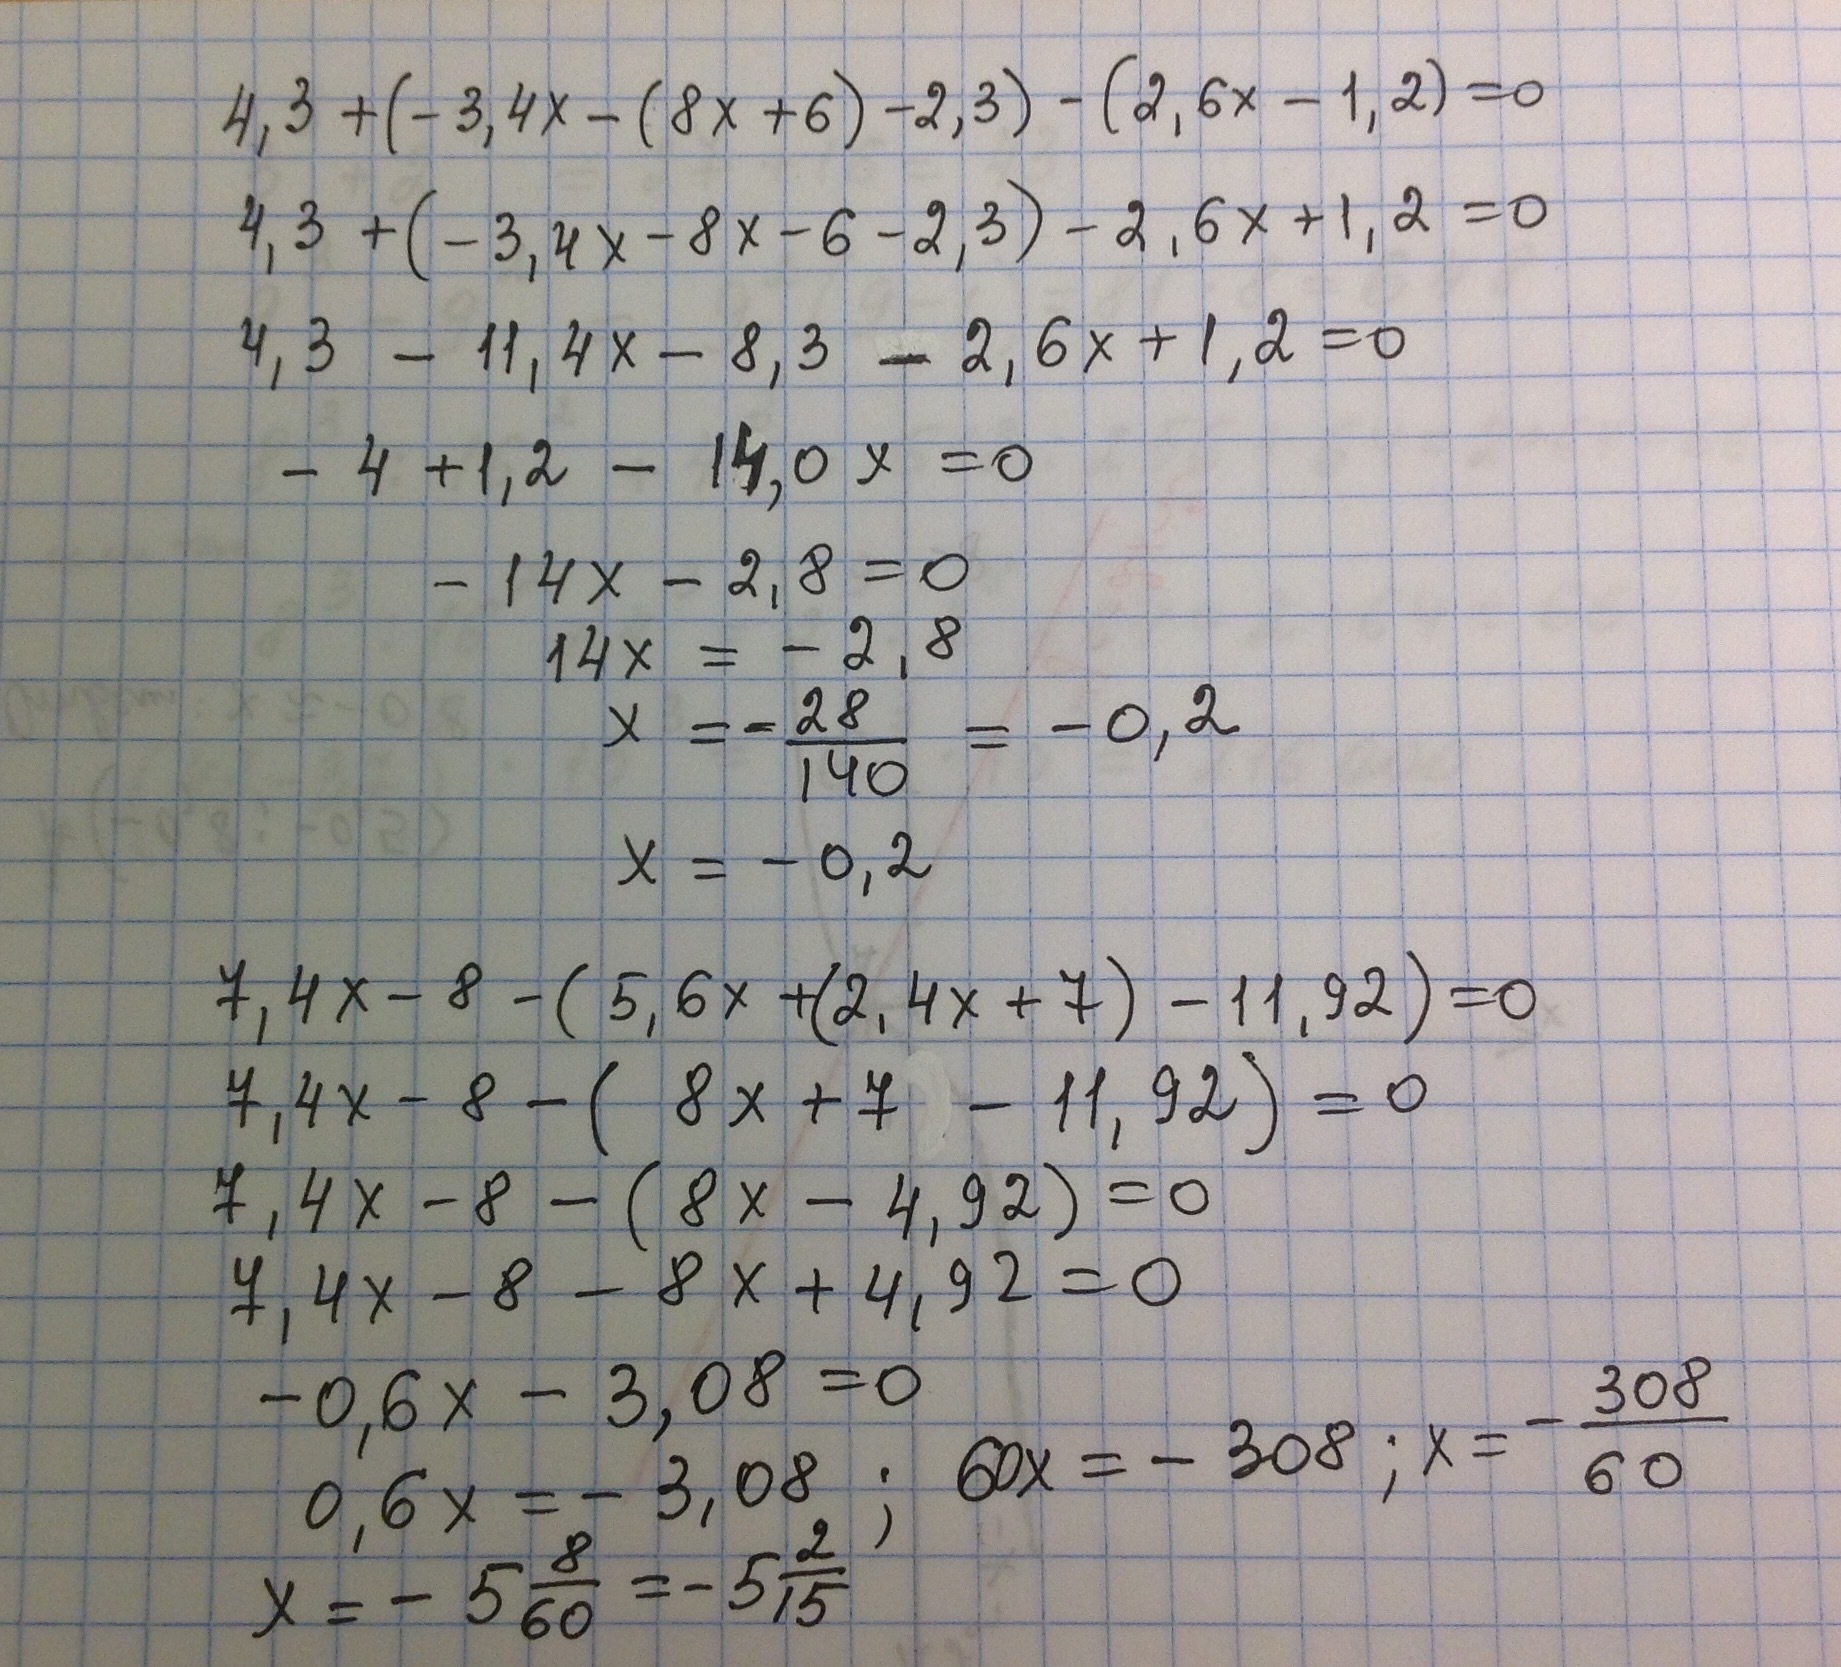 4,3 + (-3,4x - (8x + 6) - 2,3) - (2,6x - 1,2) = 0
4,3 + (-3,4x - 8x - 6 - 2,3) - 2,6x + 1,2 = 0
4,3 - 11,4x - 8,3 - 2,6x + 1,2 = 0
- 4 + 1,2 - 14,0 x = 0
- 14x - 2,8 = 0
14x = - 2,8
x = - 28/140 = - 0,2
x = - 0,2
7,4x - 8 - (5,6x + (2,4x + 7) - 11,92) = 0
7,4x - 8 - (8x + 7 - 11,92) = 0
7,4x - 8 - (8x - 4,92) = 0
7,4x - 8 - 8x + 4,92 = 0
-0,6x - 3,08 = 0
0,6x = - 3,08 ; 60x = - 308 ; x = - 308/60
x = - 5 8/60 = - 5 2/15